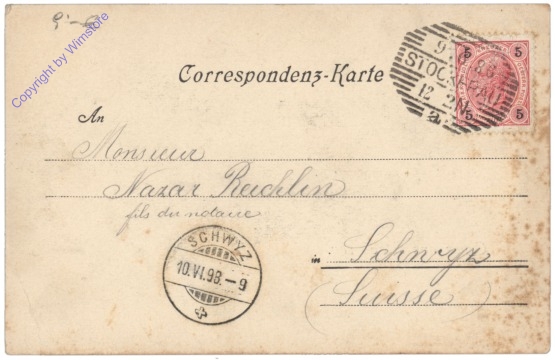 Copyright by Wimstore
5
5
5
5
9
STOCKERAU
12
a
Correspondenz-Karte
An
Monsieur
Nazar Reichlin
fils du notaire
SCHWYZ
10.VI.98.-9
in Schwyz
(Suisse)